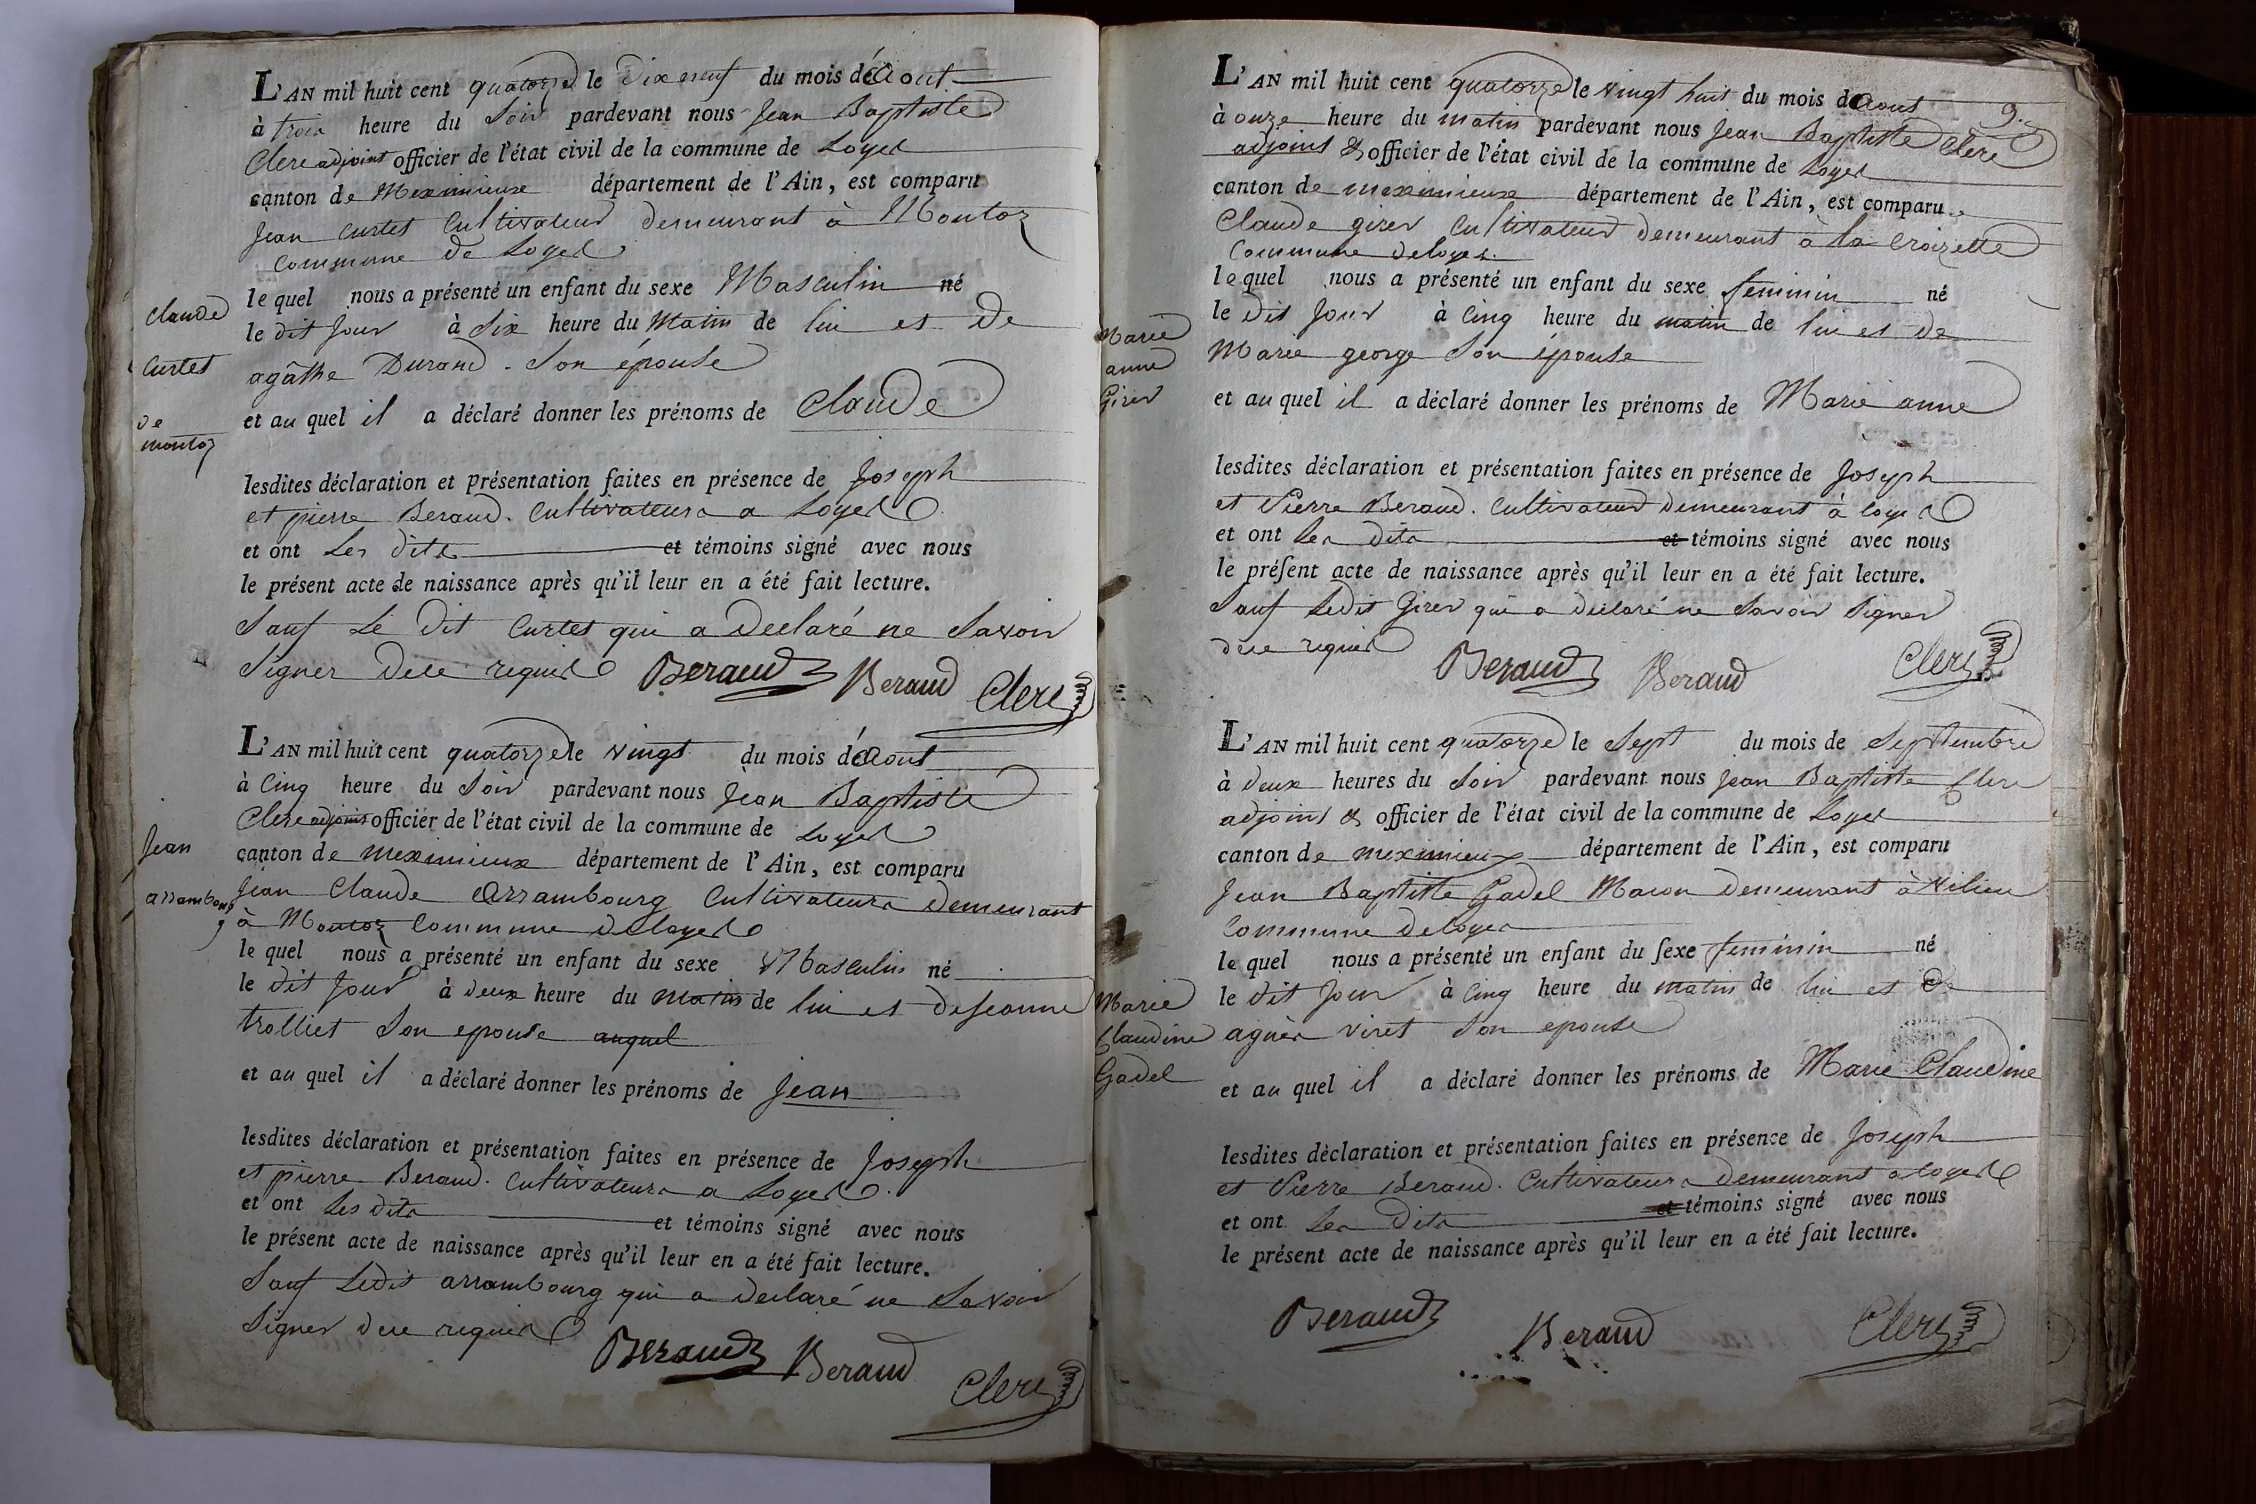 L'AN mil huit cent quatorze le dix neuf du mois de Aout
à trois heure du Soir pardevant nous Jean Baptiste
Clerc adjoint officier de l'état civil de la commune de Loyes
canton de Meximieux département de l'Ain, est comparu
Jean Curtet Cultivateur demeurant à Montoz
Commune de Loyes
lequel nous a présenté un enfant du sexe Masculin né
le dit Jour à Six heure du Matin de lui et de
agâthe Durand. Son épouse
et au quel il a déclaré donner les prénoms de Claude
lesdites déclaration et présentation faites en présence de Joseph
et pierre Beraud. Cultivateurs a Loyes
et ont Les dits et témoins signé avec nous
le présent acte de naissance après qu'il leur en a été fait lecture.
Sauf Le dit Curtet qui a declaré ne Savoir
Signer de ce requis
Beraud Beraud Clerc
Claude
Curtet
de
montoz
L'AN mil huit cent quatorze le vingt du mois de Aout
à Cinq heure du Soir pardevant nous Jean Baptiste
Clerc adjoint officier de l'état civil de la commune de Loyes
canton de meximieux département de l'Ain, est comparu
Jean Claude Arrambourg Cultivateurs demeurant
à Montoz Commune de loyes
le quel nous a présenté un enfant du sexe Masculin né
le dit Jour à deux heure du matin de lui et de Jeanne
trolliet Son epouse auquel
et au quel il a déclaré donner les prénoms de Jean
lesdites déclaration et présentation faites en présence de Joseph
et pierre Beraud. Cultivateurs a Loyes
et ont Les dits et témoins signé avec nous
le présent acte de naissance après qu'il leur en a été fait lecture.
Sauf Ledit arrambourg qui a declaré ne Savoir
Signer de ce requis
Beraud Beraud
Clerc
Jean
arrambourg
9.
L'AN mil huit cent quatorze le vingt huit du mois de Aout
à onze heure du matin pardevant nous Jean Baptiste Clerc
adjoint & officier de l'état civil de la commune de Loyes
canton de meximieux département de l'Ain, est comparu
Claude girer Cultivateur demeurant à la Croizette
Commune de loyes.
lequel nous a présenté un enfant du sexe feminin né
le dit Jour à Cinq heure du matin de lui et de
Marie george Son épouse
et au quel il a déclaré donner les prénoms de Marie anne
lesdites déclaration et présentation faites en présence de Joseph
et Pierre Beraud. Cultivateurs demeurant à loyes
et ont Les dits et témoins signé avec nous
le préſent acte de naissance après qu'il leur en a été fait lecture.
Sauf Ledit Girer qui a declaré ne Savoir Signer
de ce requis
Beraud Beraud Clerc
Marie
anne
Girer
L'AN mil huit cent quatorze le Sept du mois de Septembre
à deux heures du Soir pardevant nous Jean Baptiste Clerc
adjoint & officier de l'état civil de la commune de Loyes
canton de meximieux département de l'Ain, est comparu
Jean Baptiste Gadel Macon demeurant à Vilieu
Commune de loyes
le quel nous a présenté un enfant du ſexe feminin né
le dit Jour à Cinq heure du matin de lui et de
agnès viret Son epouse
et au quel il a déclaré donner les prénoms de Marie Claudine
lesdites déclaration et présentation faites en présence de Joseph
et Pierre Beraud. Cultivateurs demeurant a loyes
et ont Les dits et témoins signé avec nous
le présent acte de naissance après qu'il leur en a été fait lecture.
Beraud Beraud Clerc
Marie
Claudine
Gadel